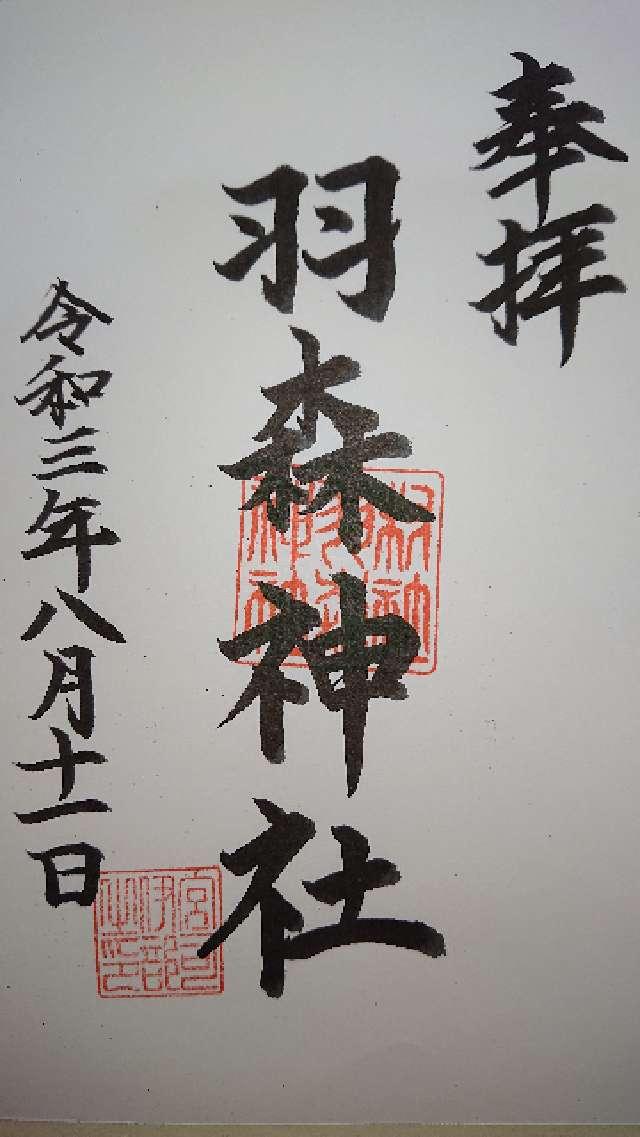 奉拝
羽森神社
令和三年八月十一日